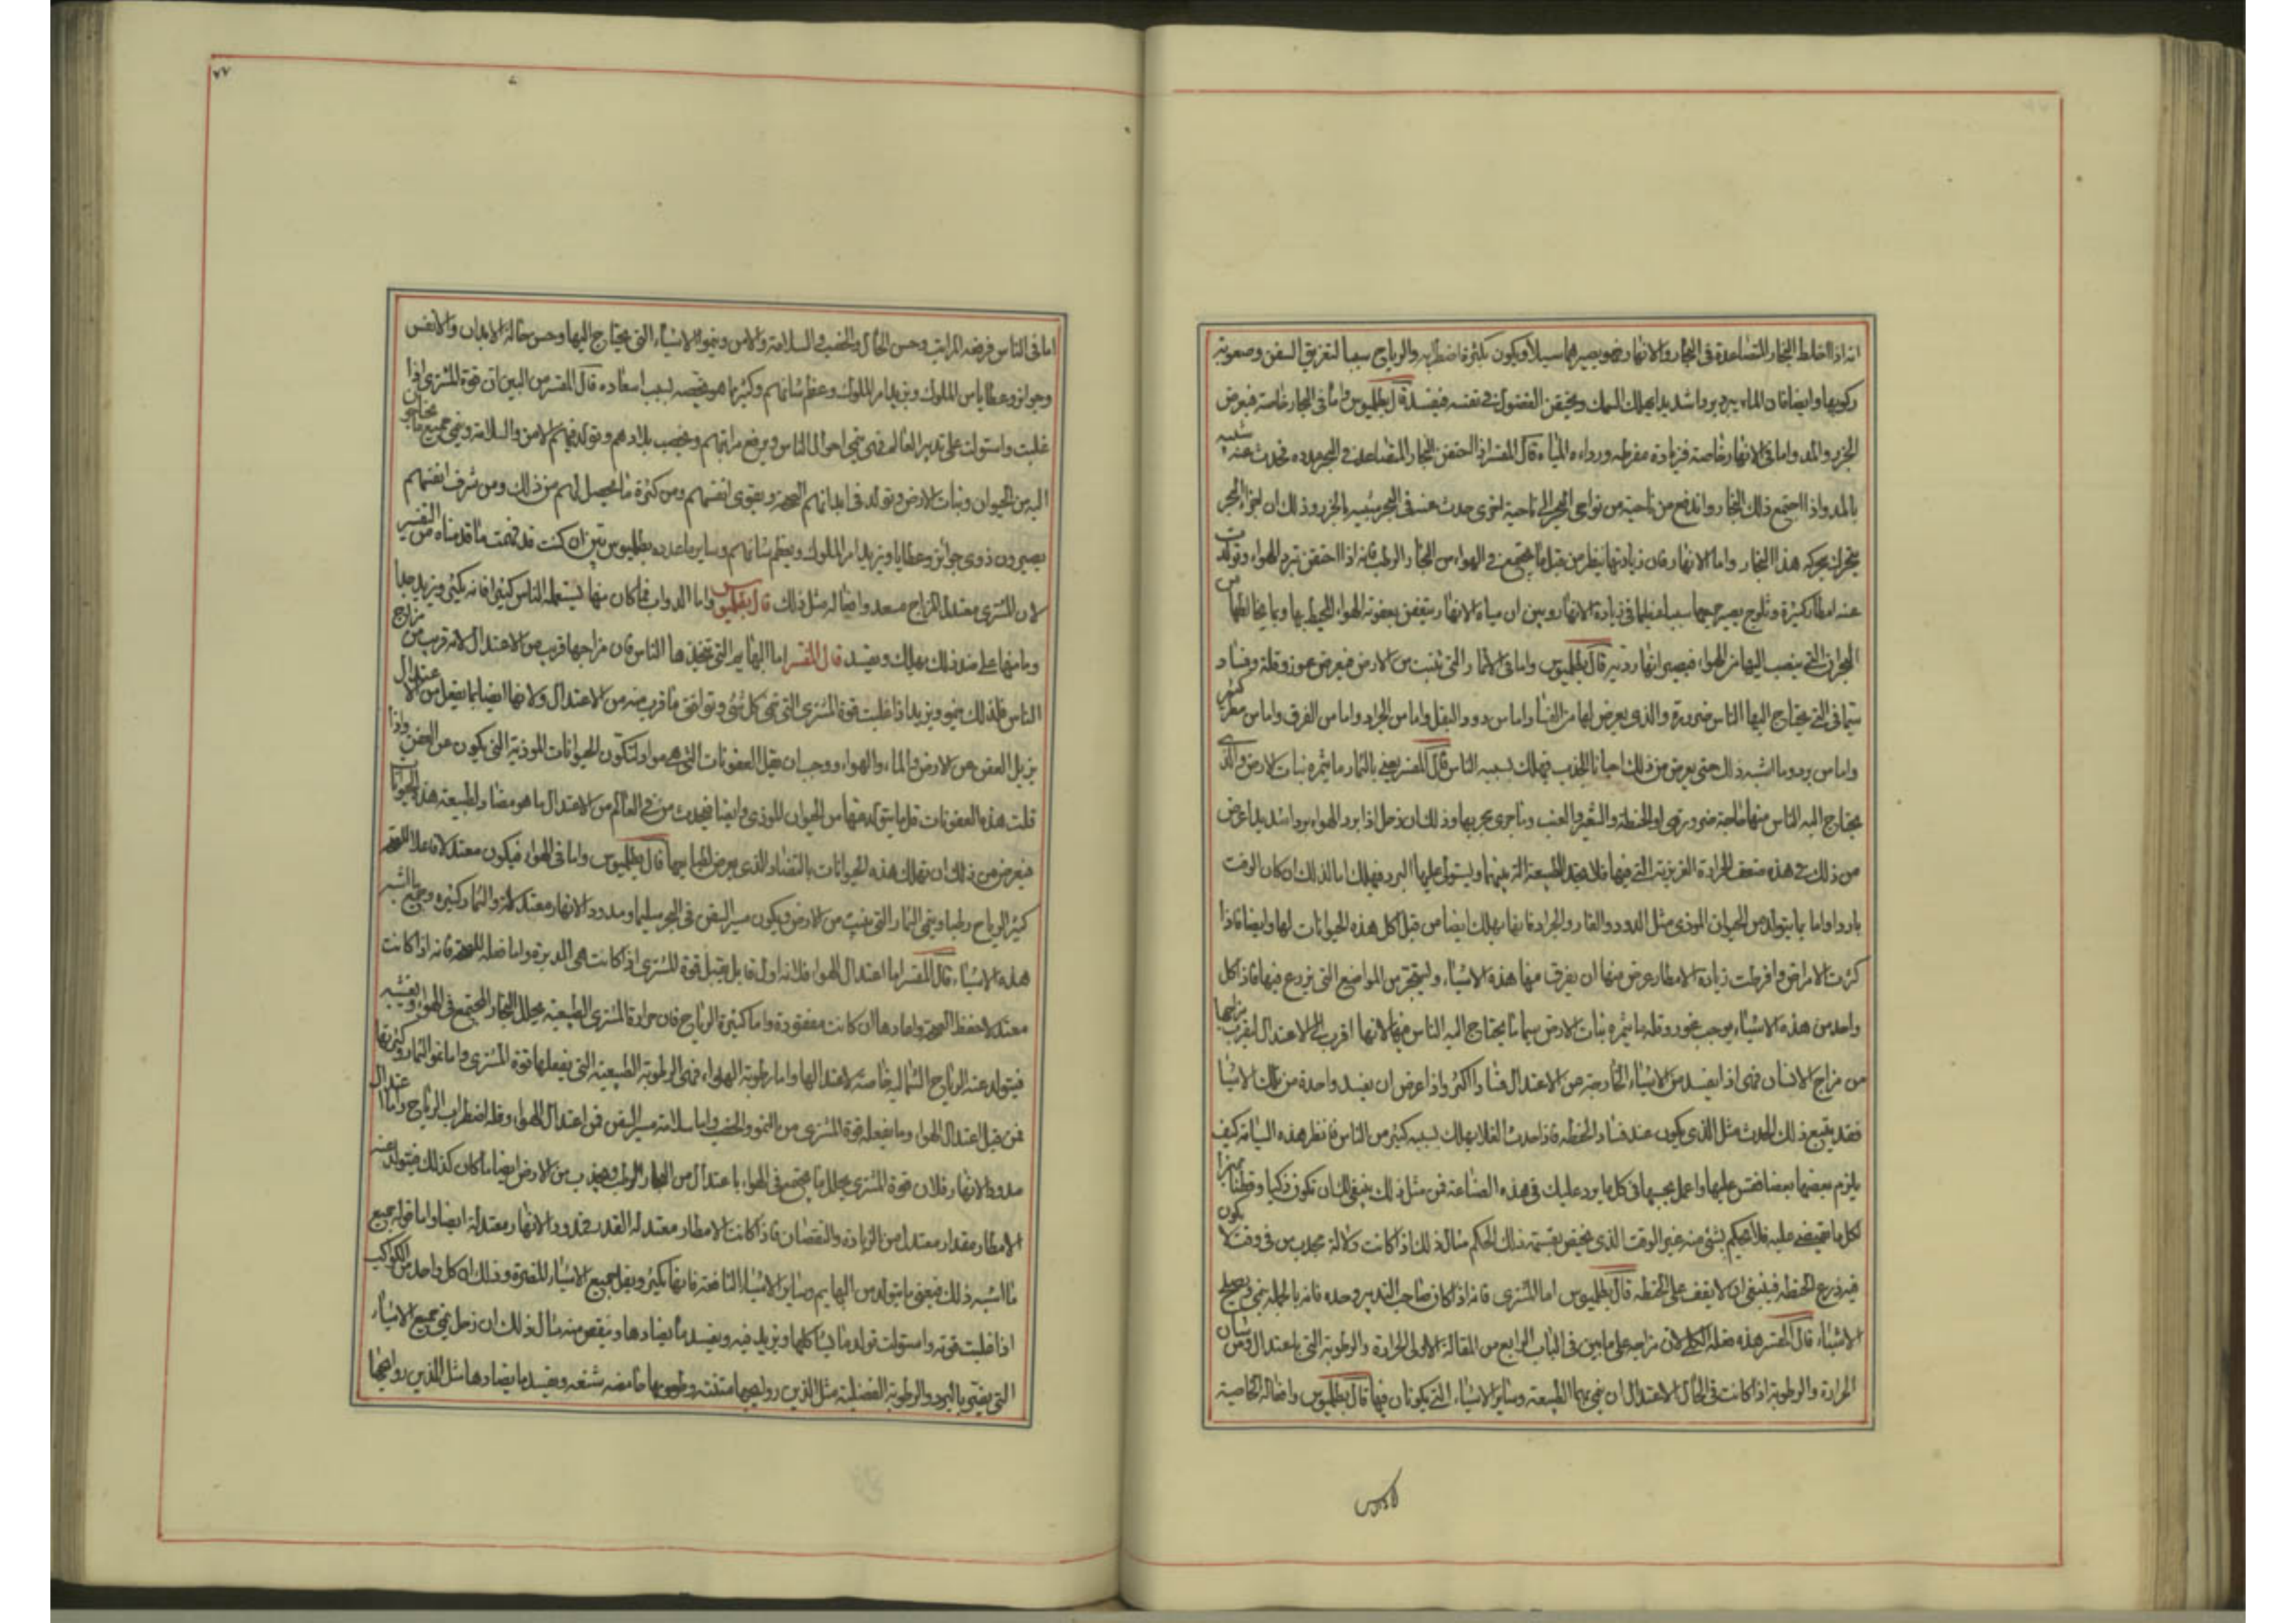 انه اذا اختلط البخار المتصاعدة فى البحار والانهار ويصيرهما سيلا ويكون كثرة اضطرابه والرياح سببا لتغريق السفن وصعوبة
ركوبها وايضا فان الماء يبرد بردا شديدا يهلك السمك ويحتقن الفضول فى نفسه فيفسد قال بطلميوس واما فى البحار خاصة فيعرض
الجزر والمد واما فى الانهار خاصة فزيادة مفرطة ورداءة المياه قال المفسر اذا احتقن البخار المتصاعد فى البحر مدده فحدث عنه شبيه
بالمد واذا اجتمع ذلك البخار واندفع من ناحية من نواحى البحر الى ناحية اخرى حدث عنه فى البحر شبيه بالجزر وذلك ان اجزاء البحر
يتحرك بحركة هذا البخار واما الانهار فان زيادتها يظهر من قبل ما يجتمع فى الهواء من البخار الرطب فانه اذا احتقن تبرد الهواء وتولدت
عنه امطار كثيرة وثلوج يصير جميعها سببا عظيما فى زيادة الانهار وبين ان مياه الانهار يتعفن بعفونة الهواء المحيط بها وبما يخالطها من
البحران التى ينصب اليها من الهواء فيصير انهار ردية قال بطلميوس واما فى الاثمار التى تنبت من الارض فيعرض عوز وقلة وفساد
سيما فى التى يحتاج اليها الناس ضرورة والذى يعرض لها من الفساد اما من دود البقل واما من الجراد واما من الغرق واما من مطر كثير
واما من برد وما اشبه ذلك حتى يعرض من ذلك احيانا الجدب فيهلك بسببه الناس قال المفسر يعنى بالثمار ما يثمره نبات الارض والذى
يحتاج اليه الناس منها حاجة ضرورية هى الحنطة والشعير والعنب وما جرى مجريها وذلك ان زحل اذا برد الهواء بردا شديدا عرض
من ذلك فى هذه ضعف الحرارة الغريزية التى فيها فلا يقبل الطبيعة التربية فيها ويستولى عليها البرد فيهلك اما لذلك ان كان الوقت
باردا واما ما يتولد من الحيوان الموذى مثل الدود والفار والجراد فانها تهلك ايضا من قبل اكل هذه الحيوانات لها وايضا فاذا
كثرت الامراض وافرطت زيادة الامطار عرض منها ان يغرق منها هذه الاشياء ويستجر من المواضع التى يزرع فيها فاذا كل
واحد من هذه الاشياء يوجب عوز وقلة ما يثمره نبات الارض سيما ما يحتاج اليه الناس منها لانها اقرب الى الاعتدال لقرب مزاجها
من مزاج الانسان فهى اذا يفسد من الاشياء الخارجة عن الاعتدال فسادا اكثر واذا عرض ان يفسد واحدة من تلك الاشيا
فقد يتبع ذلك الحدث مثل الذى يكون عند فساد الحنطة فاذا حدث الغلا يهلك بسببه كثير من الناس فانظر هذه السياقة كيف
يلزم بعضها بعضا فقس عليها واعمل بحسبها فى كل ما يرد عليك فى هذه الصناعة فمن مثل ذلك ينبغى لك ان تكون ذكيا وفطنا مميزا
لكل ما تقضى عليه فلا تحكم بشئ منه غير الوقت الذى يخص بقسمة ذلك الحكم مثال ذلك اذا كانت دلالة بجدب من فى وقت لا يكون
فيه زرع الحنطة فينبغى ان لا يقف على الحنطة قال بطلميوس اما المشترى فانه اذا كان صاحب التدبير وحده فانه بالجملة ينمى ويصلح
الاشياء قال المفسر هذه فعله الكلى لان مزاجه على ما بين فى الباب الرابع من المقالة الاولى الحرارة والرطوبة التى باعتدال ومن شان
الحرارة والرطوبة اذا كانت فى الحال الاعتدال ان ينمى بهما الطبيعة وساير الاشياء التى يكونان فيها قال بطلميوس وافعاله الخاصية
لادوس
٧٧
اما فى الناس فرفعة المراتب وحسن الحال والخصب والسلامة والامن وينمو الاشياء التى يحتاج اليها وحسن حالة الابدان والانفس
وجوائز وعطايا من الملوك ويزيد امر الملوك وعظم شانهم وكثير ما هو يخصه بسبب اسعاده قال المفسر من البين ان قوة المشترى اذا
غلبت واستولت على تدبير العالم فهى ينمى احوال الناس ويرفع مراتبهم ويخصب بلادهم وتولد فيهم الامن والسلامة وينمى جميع ما يحتاجون
اليه من الحيوان ونبات الارض وتولد فى ابدانهم الصحة ويقوى انفسهم ومن كثرة ما يحصل لهم من ذلك ومن شرف انفسهم
يصيرون ذوى جوائز وعطايا ويزيد امر الملوك ويعظم شانهم وساير ما عدده بطلميوس بين ان كنت قد فهمت ما قدمناه من التفسير
لان المشترى معتدل المزاج مسعد وافعاله مثل ذلك قال بطلميوس واما الدواب فما كان منها يستعمله الناس كثيرا فانه يكثر ويزيد جدا
وما منها على ضد ذلك يهلك ويفسد قال المفسر اما البهايم التى يتخذها الناس فان مزاجها قريب من الاعتدال لانه قريب من مزاج
الناس فلذلك ينمو ويزيد اذا غلبت قوة المشترى التى تنمى كل شئ وتوافق ما قرب منه من الاعتدال ولانها ايضا بما يفعل من الاعتدال
يزيل العفن عن الارض والماء والهواء ووجب ان يقبل العفونات التى هى مواد لتكون الحيوانات الموذية التى يكون عن العفن واذا
قلت هذه العفونات قل ما يتولد منها من الحيوان الموذى وايضا فيحدث منه فى العالم من الاعتدال ما هو مضاد لطبيعة هذه الحيوانات
فيعرض من ذلك ان تهلك هذه الحيوانات بالتضاد الذى يعرض لطبايعها قال بطلميوس واما فى الهواء فيكون معتدلا فاعلا للصحة
كثير الرياح رطبا وينمى الثمار التى ينبت من الارض ويكون مسير السفن فى البحر سليما ومدود الانهار معتدلة والثمار كثيرة وجميع ما اشبه
هذه الاشياء قال المفسر اما اعتدال الهواء فلانه اول قابل يقبل قوة المشترى اذا كانت هى المدبرة واما فعله للصحة فانه اذا كانت
معتدلا حفظ الصحة واعادها ان كانت مفقودة واما كثيرة الرياح فان حرارة المشترى الطبيعية يحلل البخار المجتمع فى الهواء ويفشيه
فيتولد عنه الرياح الشمالية خاصة لاعتدالها واما رطوبة الهواء فهى الرطوبة الطبيعية التى يفعلها قوة المشترى واما نمو الثمار وكثرتها
فمن قبل اعتدال الهواء وما يفعله قوة المشترى من النمو والخصب واما سلامة مسير السفن فمن اعتدال الهواء وقلة اضطراب الرياح واما اعتدال
مدود الانهار فلان قوة المشترى يحلل ما يجتمع فى الهواء باعتدال من البخار الرطب ويجذب من الارض ايضا ما كان كذلك فيتولد عنه
الامطار مقدار معتدل من الزيادة والنقصان فاذا كانت الامطار معتدلة القدر فمدود الانهار معتدلة ايضا واما قوله جميع
ما اشبه ذلك فيعنى ما يتولد من البهايم وساير الاشياء النافعة فانها يكثر ويقل جميع الاشياء المضرة وذلك ان كل واحد من الكواكب
اذا غلبت قوته واستولت تولد ما يشاكلها ويزيد فيه ويفسد ما يضادها وينقص منه مثال ذلك ان زحل ينمى جميع الاشياء
التى يعنى بالبرد والرطوبة الفضلية مثل الذين روايحهما منتنة وطعومها حامضة شنعة ويفسد ما يضادها مثل الذين روايحها